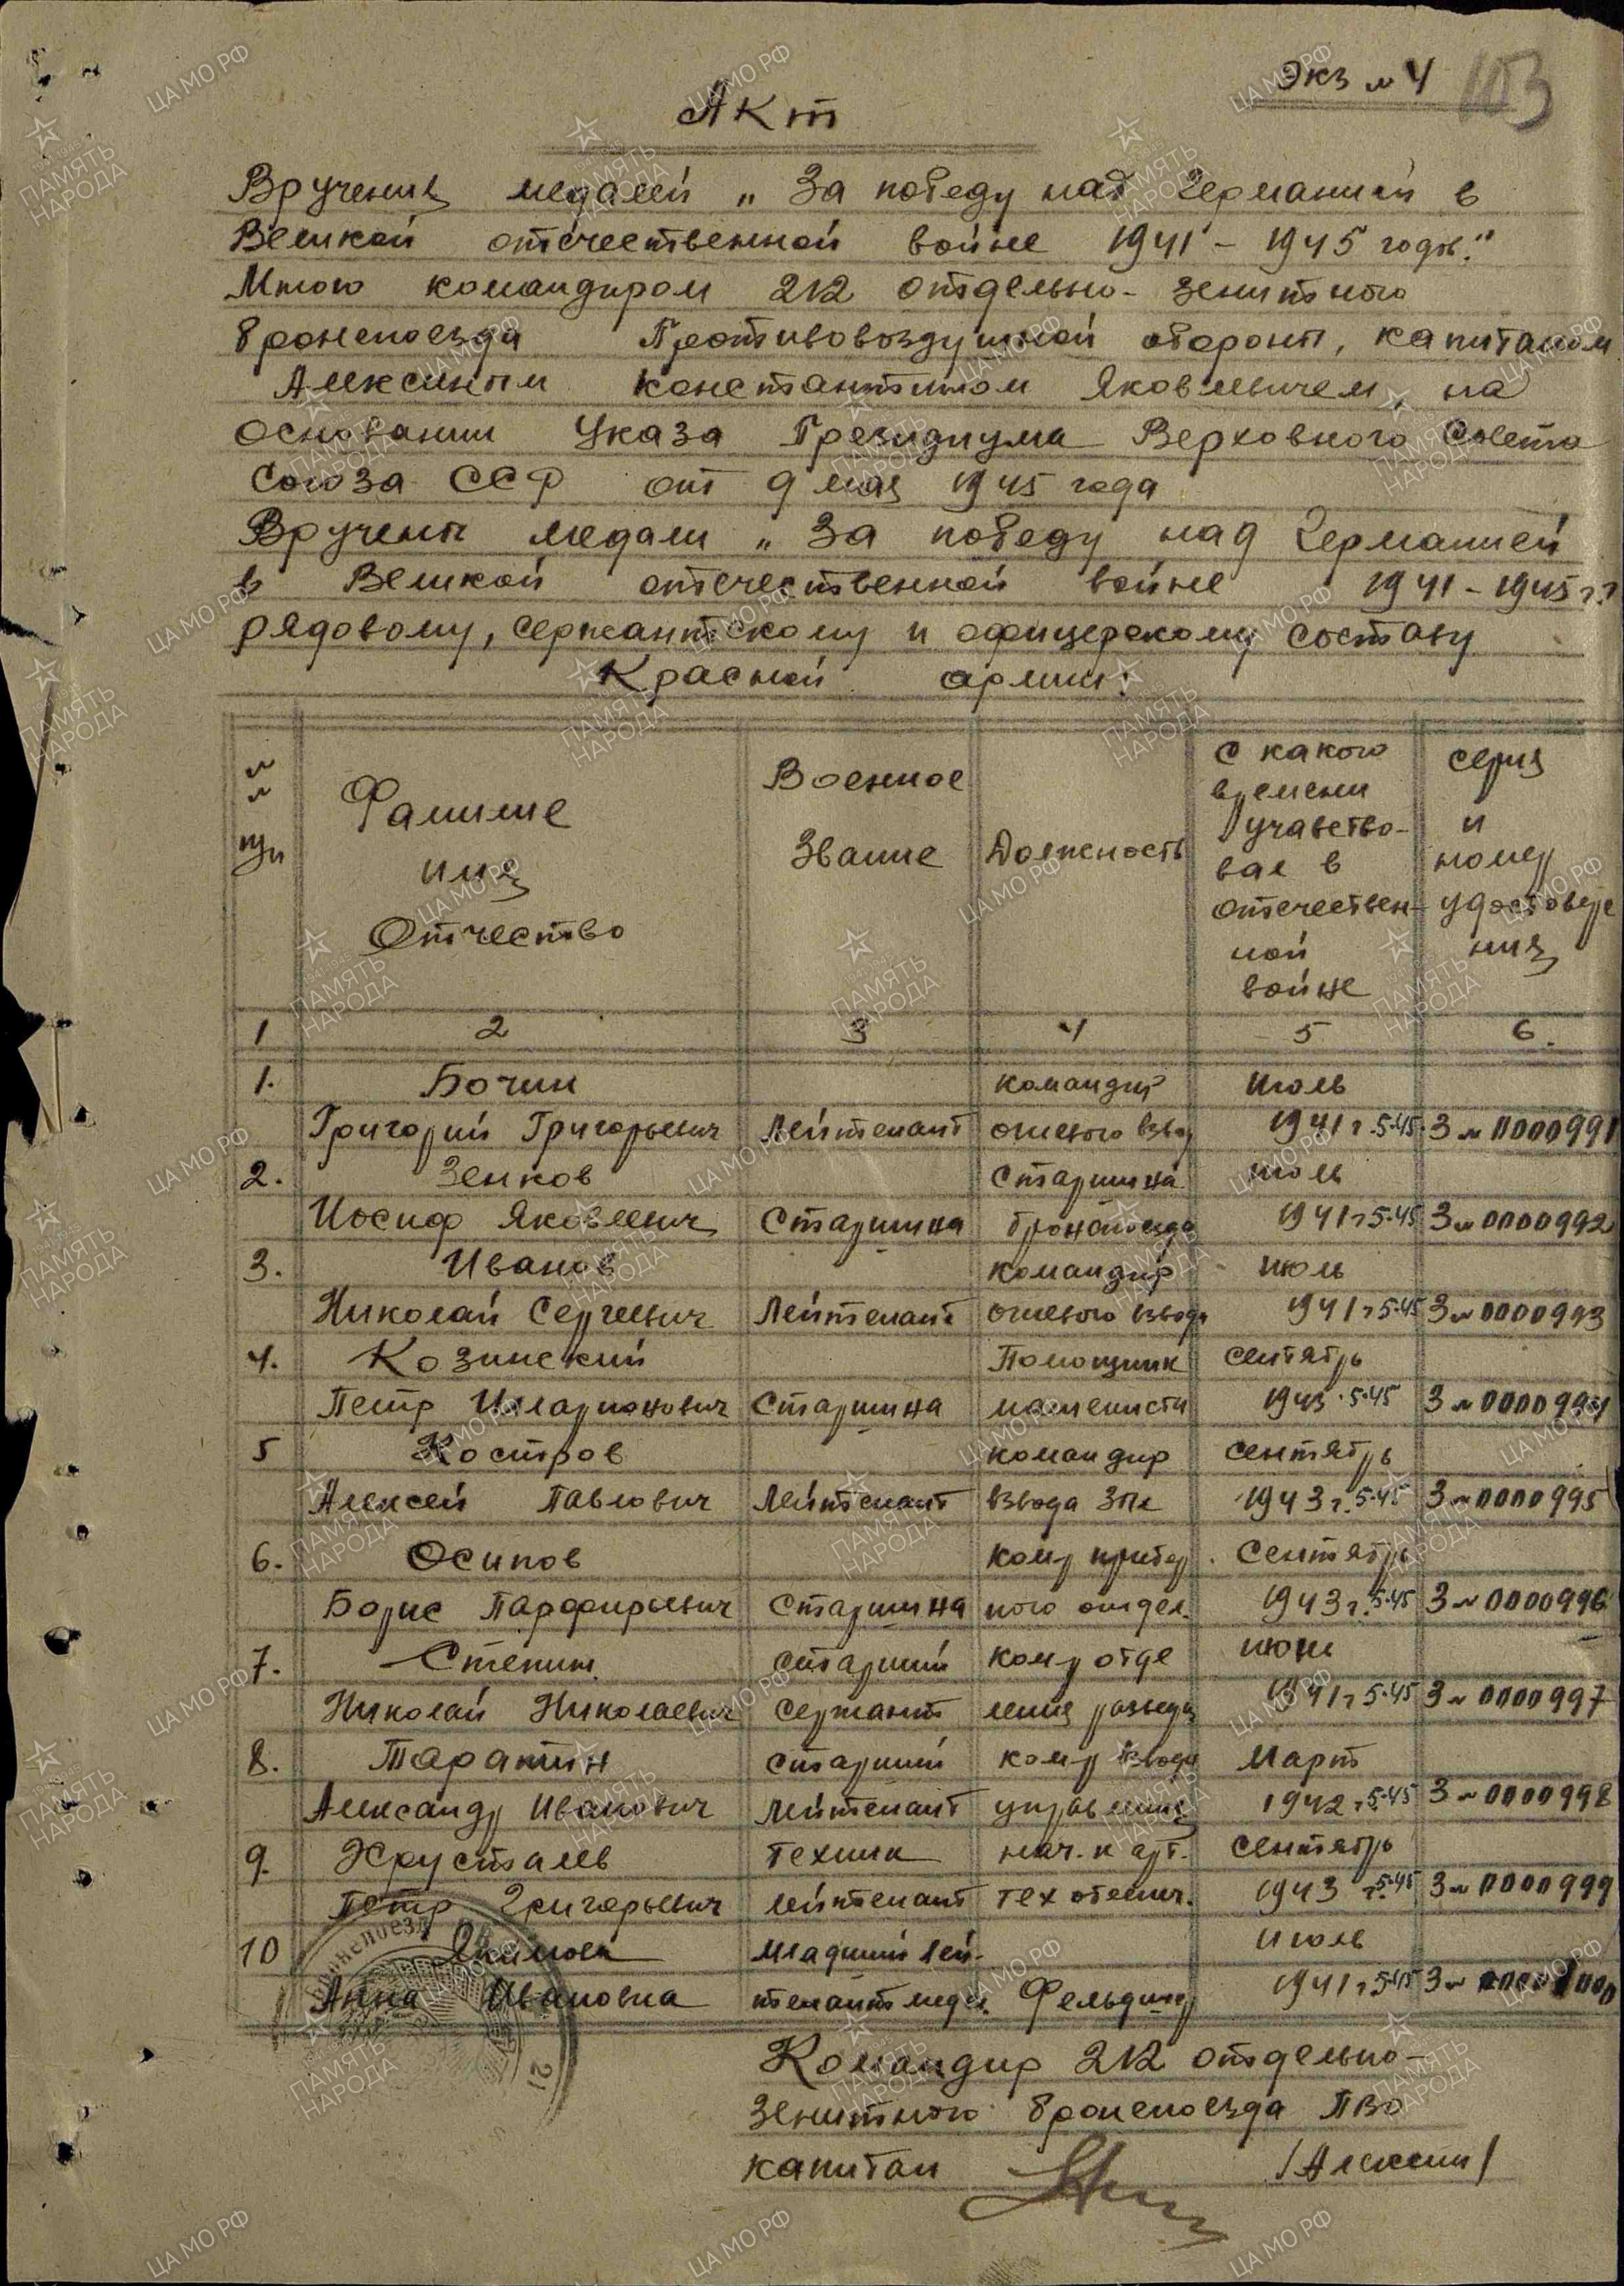 Экз № 4 103
Акт
Вручения медалей „За победу над Германией в
Великой отечественной войне 1941 - 1945 годы."
Мною командиром 212 отдельно- зенитного
бронепоезда Противовоздушной обороны, капитаном
Алексиным Константином Яковлевичем, на
основании Указа Президиума Верховного Совета
Союза ССР от 9 мая 1945 года
Вручены медали „За победу над Германией
в Великой отечественной войне 1941 - 1945 г.г
рядовому, сержантскому и офицерскому составу
Красной армии:
№ № п/п
Фамилие имя Отчество
Военное Звание
Должность
С какого времени участвовал в отечественной войне
серия и номер удостоверения
1 2 3 4 5 6.
1. Бочин командир июль
Григорий Григорьевич Лейтенант огневого взвод 1941 г. 5.45. З № 0000991
2. Зенков Старшина июль
Иосиф Яковлевич Старшина бронепоезда 1941 г 5.45 З № 0000992
3. Иванов командир июль
Николай Сергеевич Лейтенант огневого взвода 1941 г 5.45 З № 0000993
4. Козинский Помощник сентябрь
Петр Илларионович Старшина машениста 1943 5.45 З № 0000994
5 Костров командир сентябрь
Алексей Павлович Лейтенант взвода Зпе 1943 г. 5.45 З № 0000995
6. Осипов ком-р прибор сентябрь
Борис Парфирьевич Старшина ного отдел. 1943 г. 5.45 З № 0000996
7. Степин старший ком-р отде июнь
Николай Николаевич сержант ления развед 1941 г 5.45 З № 0000997
8. Таратин старший ком-р взвода Март
Александр Иванович лейтенант управления 1942 г 5.45 З № 0000998
9. Хрусталев техник нач-к арт. сентябрь
Петр Григорьевич лейтенант тех 1943 г. 5.45 З № 0000999
10 Якимова младший лей- июль
Анна Ивановна тенант мед. Фельдшер 1941 г 5.45 З № 0001000
бронепоезд
21
Командир 212 отдельно-
зенитного бронепоезда ПВО
капитан /Алексин/
ПАМЯТЬ НАРОДА
ЦА МО РФ